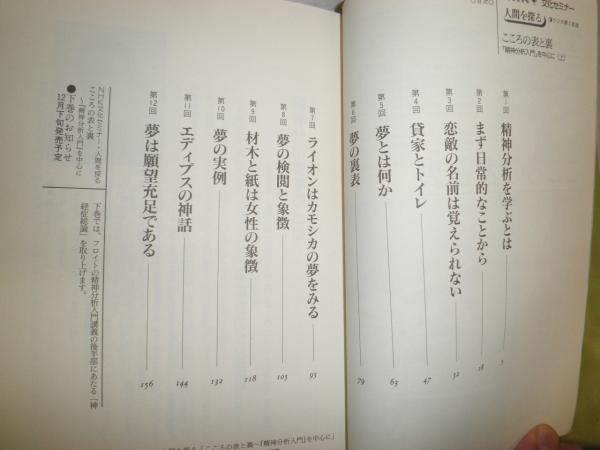 文化セミナー
人間を探る
こころの表と裏
『精神分析入門』を中心に(上)
第1回 精神分析を学ぶとは 5
第2回 まず日常的なことから 18
第3回 恋敵の名前は覚えられない 32
第4回 貸家とトイレ 47
第5回 夢とは何か 63
第6回 夢の裏表 79
第7回 ライオンはカモシカの夢をみる 93
第8回 夢の検閲と象徴 105
第9回 材木と紙は女性の象徴 118
第10回 夢の実例 132
第11回 エディプスの神話 144
第12回 夢は願望充足である 156
NHK文化セミナー・人間を探る
こころの表と裏
〜『精神分析入門』を中心に
●下巻のお知らせ
12月下旬発売予定
下巻では、フロイトの精神分析入門講義の後半部にあたる「神
経症総論」を取り上げます。
「こころの表と裏〜『精神分析入門』を中心に」